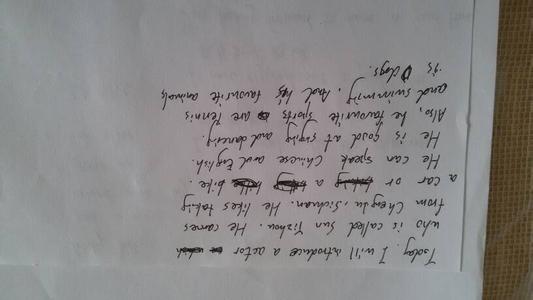 Today. I will introduce a actor
who is called Sun Yizhou. He comes
from Chengdu. Sichuan. He likes taking
a car or a bike.
He can speak Chinese and English.
He is good at singing and dancing.
Also, he favourite sports are Tennis
and swimming. And his favourite animals
is dogs.